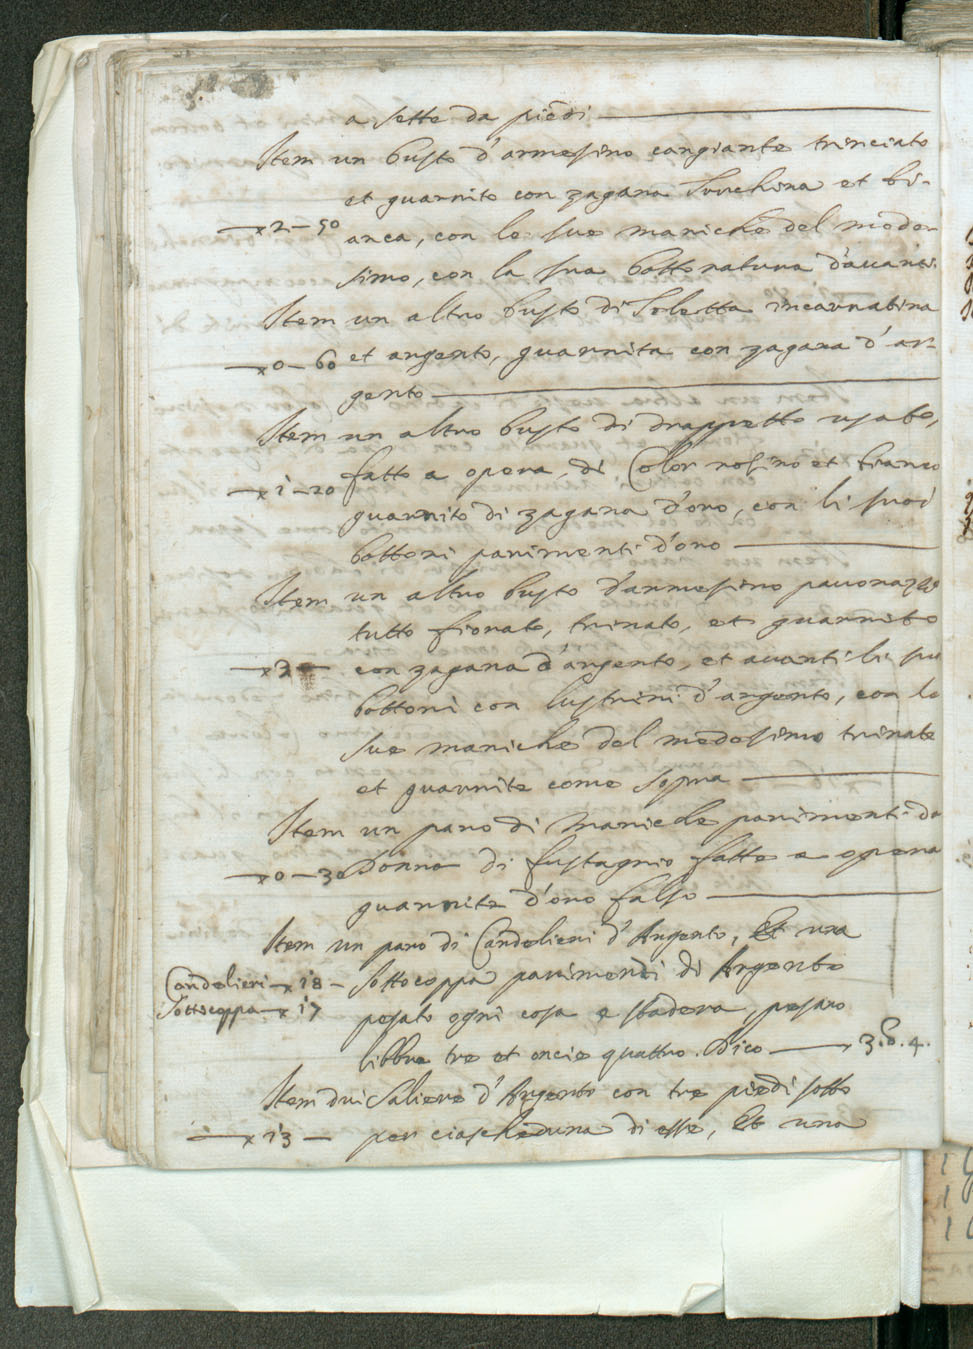 a sette da piedi
Item un busto d'armesino cangiante trinciato
et guarnito con zagana turchina et bi-
x 2 - 50 anca, con le sue maniche del mede-
simo, con la sua bottonatura d'avanti.
Item un altro busto di Toletta incarnatina
x 0 - 60 et argento, guarnita con zagana d'ar-
gento
Item un altro busto di drappetto usato,
fatto a opera di Color rosino et bianco
x 1 - 20
guarnito di zagana d'oro, con li suoi
bottoni parimenti d'oro
Item un altro busto d'armesino pauonazzo
tutto fiorato, trinato, et guarnito
x 3 - con zagana d'argento, et auanti li su
bottoni con lustrini d'argento, con le
sue maniche del medesimo trinate
et guarnite come sopra
Item un paro di maniche parimenti da
x 0 - 30 Donna di fustagno fatte a opera
guarnite d'oro falso
Item un paro di Candelieri d'Argento, Et una
Candelieri x 18 - sottocoppa parimenti di Argento
Sottocoppa x 17
pesato ogni cosa a stadera, pesaro
libbre tre et oncie quattro. Dico 3.lb.4.
Item dui Saliere d'Argento con tre piedi sotto
x 13 - per ciascheduna di esse, Et una